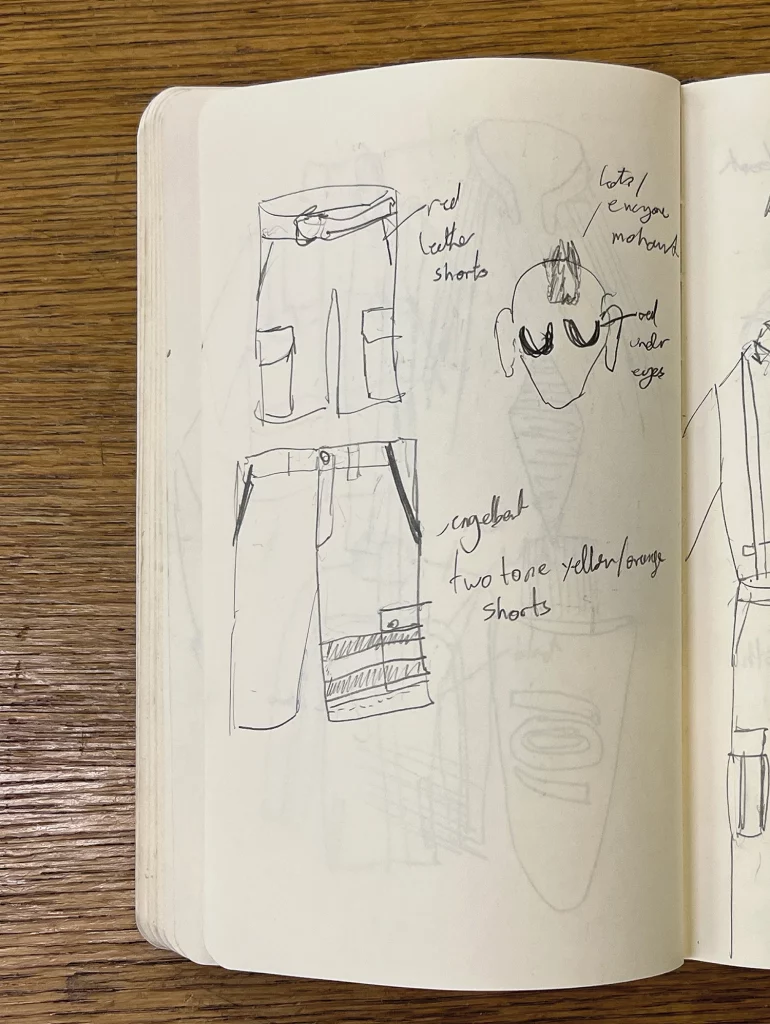 red
leather
shorts
mohawk
red
under
eyes
two tone yellow/orange
shorts